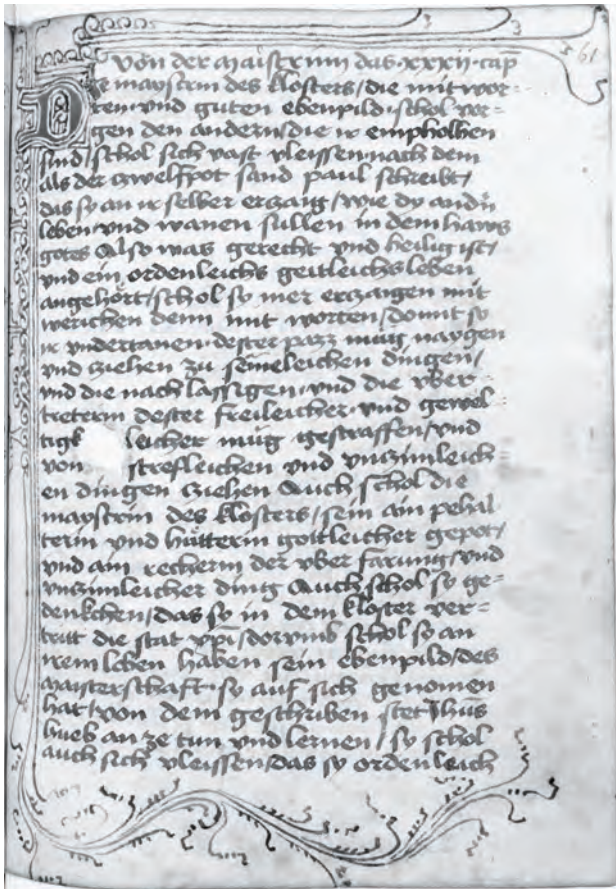 61
Von der Maistrinn das xxxii cap̄
Die maystrin des klosters / die mit wor=
ten vnd guten ebenpild schol vor=
gen den andern / die ir empholhen
sind / schol sich vast vleissen nach dem
als der zwelfpot sand paul schreibt /
das sy an ir selber erzaig / wie dy andn̄
leben vnd wanen sullen in dem haws
gotes Also was gerecht vnd heilig ist /
vnd ein ordenleichs geitleichs leben
angehort / schol sy mer erzaigen mit
werichen denn mit worten / domit sy
ir vndertanen dester pazz mug naygen
vnd ziehen zu semeleichen dingen /
vnd die nachlassigen vnd die vber
treterin dester freileicher vnd gewel
tigk leicher mug gestraffen / vnd
von strefleichen vnd vnzimleich=
en dingen ziehen Auch schol die
maystrin des klosters / sein ain pehal
terin vnd hütterin gottleicher gepot /
vnd ain recherin der vber farung / vnd
vnzimleicher ding Auch schol sy ge=
denkchen / das sy in dem kloster ver=
tritt die stat xp̄i / dorvmb schol sy an
irem leben haben sein ebenpild / des
maisterschaft sy auf sich genomen
hat / von dem geschriben stet Jhus
hueb an ze tun vnd lernen / sy schol
auch sich vleissen / das sy ordenleich